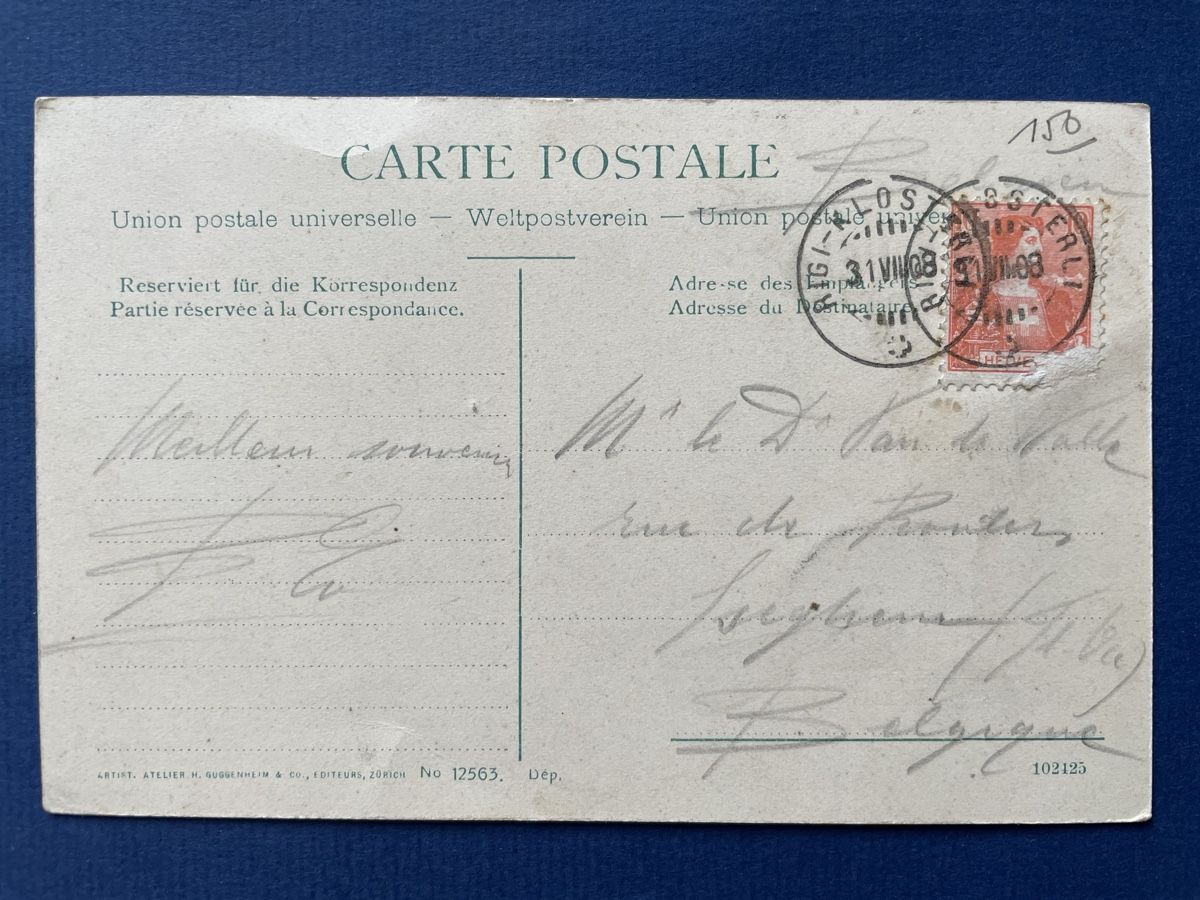 150
CARTE POSTALE
Union postale universelle — Weltpostverein — Union postale univer
Reserviert für die Korrespondenz
Partie réservée à la Correspondance.
Adresse des Empfängers
Adresse du Destinataire
RIGI-KLÖSTERLI
31 VII 08
RIGI-KLÖSTERLI
31 VII 08
HELVE
Meilleur souvenir
Mr le Dr Van de Walle
rue de
Iseghem (Fl. Occ)
Belgique
ARTIST. ATELIER H. GUGGENHEIM & CO., EDITEURS, ZÜRICH No 12563. Dép.
102425